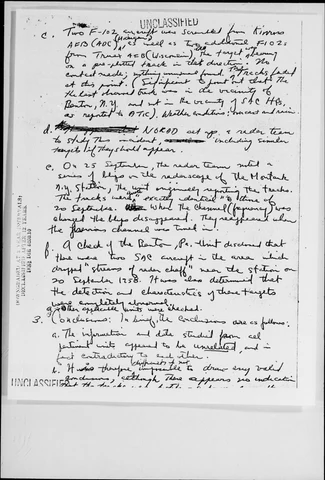 UNCLASSIFIED
c. Two F-102 aircraft were scrambled from Kinross
AFB (ADC) (Michigan) as well as two additional F102s
from Truax AFB (Wisconsin), the target showing
on a pre-plotted track in that direction. No
contact made; nothing unusual found. Tracks faded
at this point. (Significant to point out that the
the last showed track was in the vicinity of
Benton, N.Y. and not in the vicinity of SAC HQs,
as reported to ATIC). Weather conditions; moist and rain.
d. NORAD set up a radar team
to study this incident including similar
targets if they should appear.
e. On 25 September, the radar teams noted a
series of blips on the radarscope of the Montauk
N.Y. Station, the unit originally reporting the tracks.
The tracks were "exactly identical" to those of
20 September. When the channel (frequency) was
changed the blips disappeared. They reappeared when
the previous channel was tuned in.
f. A check of the Benton, Pa. Unit disclosed that
there were two SAC aircraft in the area which
dropped "streams of radar chaff" near the station on
20 September 1958. It was also determined that
the detection and characteristics of these targets
were completely abnormal.
g. Other applicable units were checked.
3. Conclusions: In brief, the conclusions are as follows:
a. The information and data studied from all
pertinent units appeared to be unrelated, and in
fact contradictory to each other.
b. It was therefore impossible to draw any valid
conclusions, although there appears no indication
UNCLASSIFIED